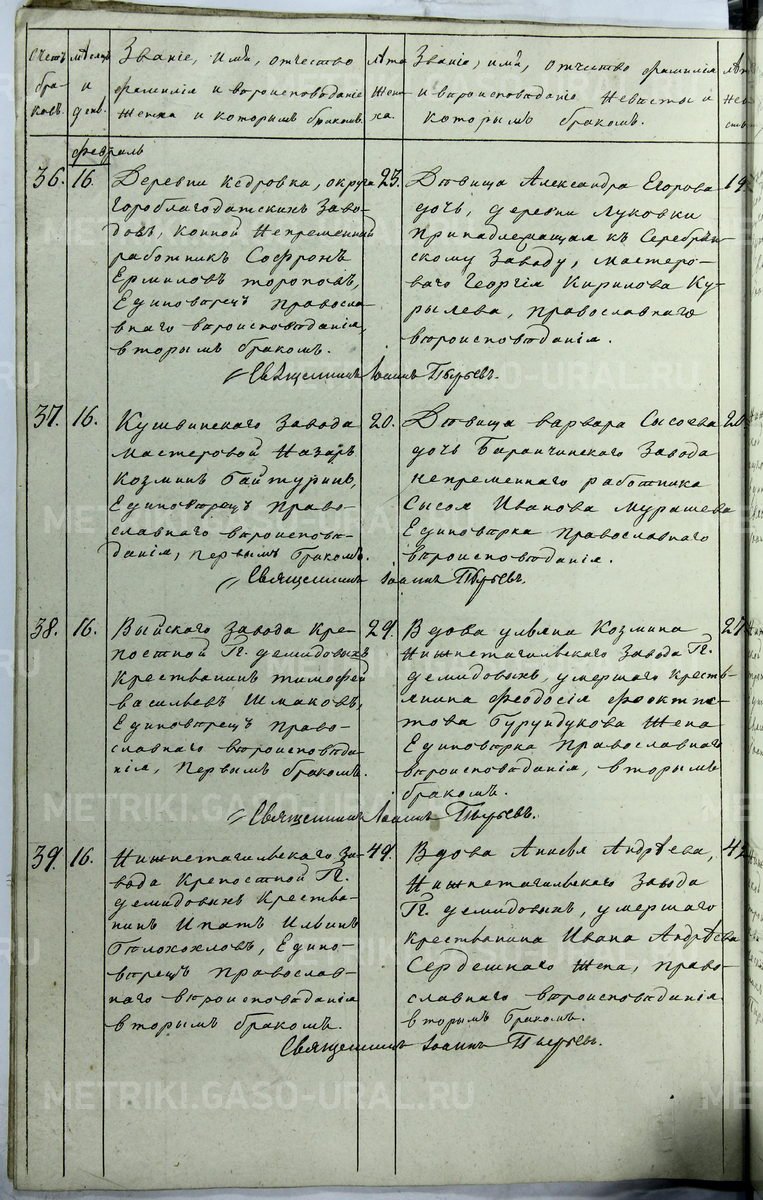 Счетъ браковъ.
Мѣсяцъ и день.
Званіе, имя, отчество
фамилія и вѣроисповѣданіе
жениха и которымъ бракомъ.
Лѣта жениха.
Званіе, имя, отчество фамилія
и вѣроисповѣданіе невѣсты и
которымъ бракомъ.
Февраль
36. 16.
Деревни Кедровка, округа
Гороблагодатскихъ Заво-
довъ, конной непременный
работникъ Софронъ
Ермиловъ Тороповъ,
Единовѣрецъ Правосла-
внаго вѣроисповѣданія,
вторымъ бракомъ.
23.
Дѣвица Александра Егорова
дочь, деревни Луковки
принадлежащая къ Серебрян-
скому Заводу, мастеро-
ваго Георгія Кирилова Ку-
рылева, православнаго
вѣроисповѣданія.
19.
Священникъ Іоаннъ Пырьевъ.
37. 16.
Кушвинскаго Завода
мастеровой Назаръ
Козминъ Байтуринъ,
Единовѣрецъ Право-
славнаго вѣроисповѣ-
данія, первымъ бракомъ.
20.
Дѣвица Варвара Сысоева
дочь Баранчинскаго Завода
непременнаго работника
Сысоя Иванова Мурашева
Единовѣрка Православнаго
вѣроисповѣданія.
20.
Священникъ Іоаннъ Пырьевъ.
38. 16.
Выйскаго Завода Кре-
постной Гг. Демидовыхъ
крестьянинъ Тимофей
Васильевъ Шмаковъ,
Единовѣрецъ Право-
славнаго вѣроисповѣда-
нія, первымъ бракомъ.
29.
Вдова Ульяна Козмина
Нижнетагильскаго Завода Гг.
Демидовыхъ, умершаго кресть-
янина Феодосія Феоктис-
това Бурундукова жена
Единовѣрка Православнаго
вѣроисповѣданія, вторымъ
бракомъ.
27
Священникъ Іоаннъ Пырьевъ.
39. 16.
Нижнетагильскаго За-
вода Крепостной Гг.
Демидовыхъ Крестья-
нинъ Ипатъ Ильинъ
Толохохловъ, Едино-
вѣрецъ Православ-
наго вѣроисповѣданія
вторымъ бракомъ.
49.
Вдова Анисья Андрѣева,
Нижнетагильскаго Завода
Гг. Демидовыхъ, умершаго
крестьянина Ивана Андрѣева
Сердешнаго жена, право-
славнаго вѣроисповѣданія
вторымъ бракомъ.
42
Священникъ Іоаннъ Пырьевъ.
METRIKI.GASO-URAL.RU